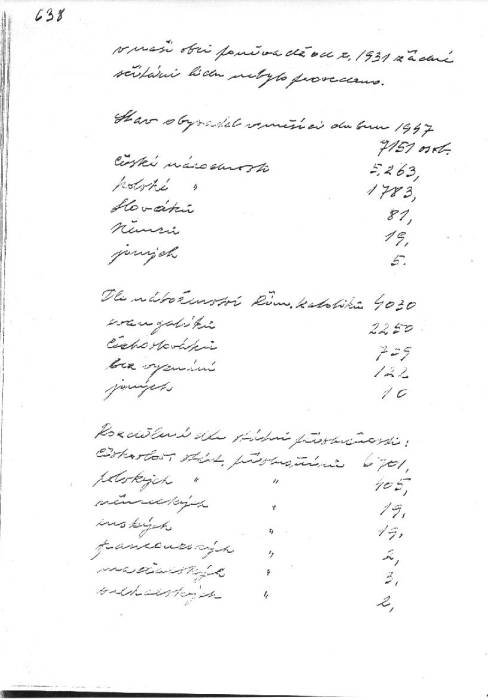 638
v naší obci poněvadž od r. 1931 žádné
sčítání lidu nebylo provedeno.
Stav obyvatel v měsíci dubnu 1947
7151 osob.
české národnosti 5.263,
polské " 1783,
Slováků 81,
Němců 19,
jiných 5.
Dle náboženství Řím. katolíků 4030
evangelíků 2250
Čechoslováků 739
bez vyznání 122
jiných 10
Rozdělení dle státní příslušnosti:
Českoslov. stát. příslušníků 6701,
polských " " 405,
německých " 19,
ruských " 19,
francouzských " 2,
maďarských " 3,
bulharských " 2,